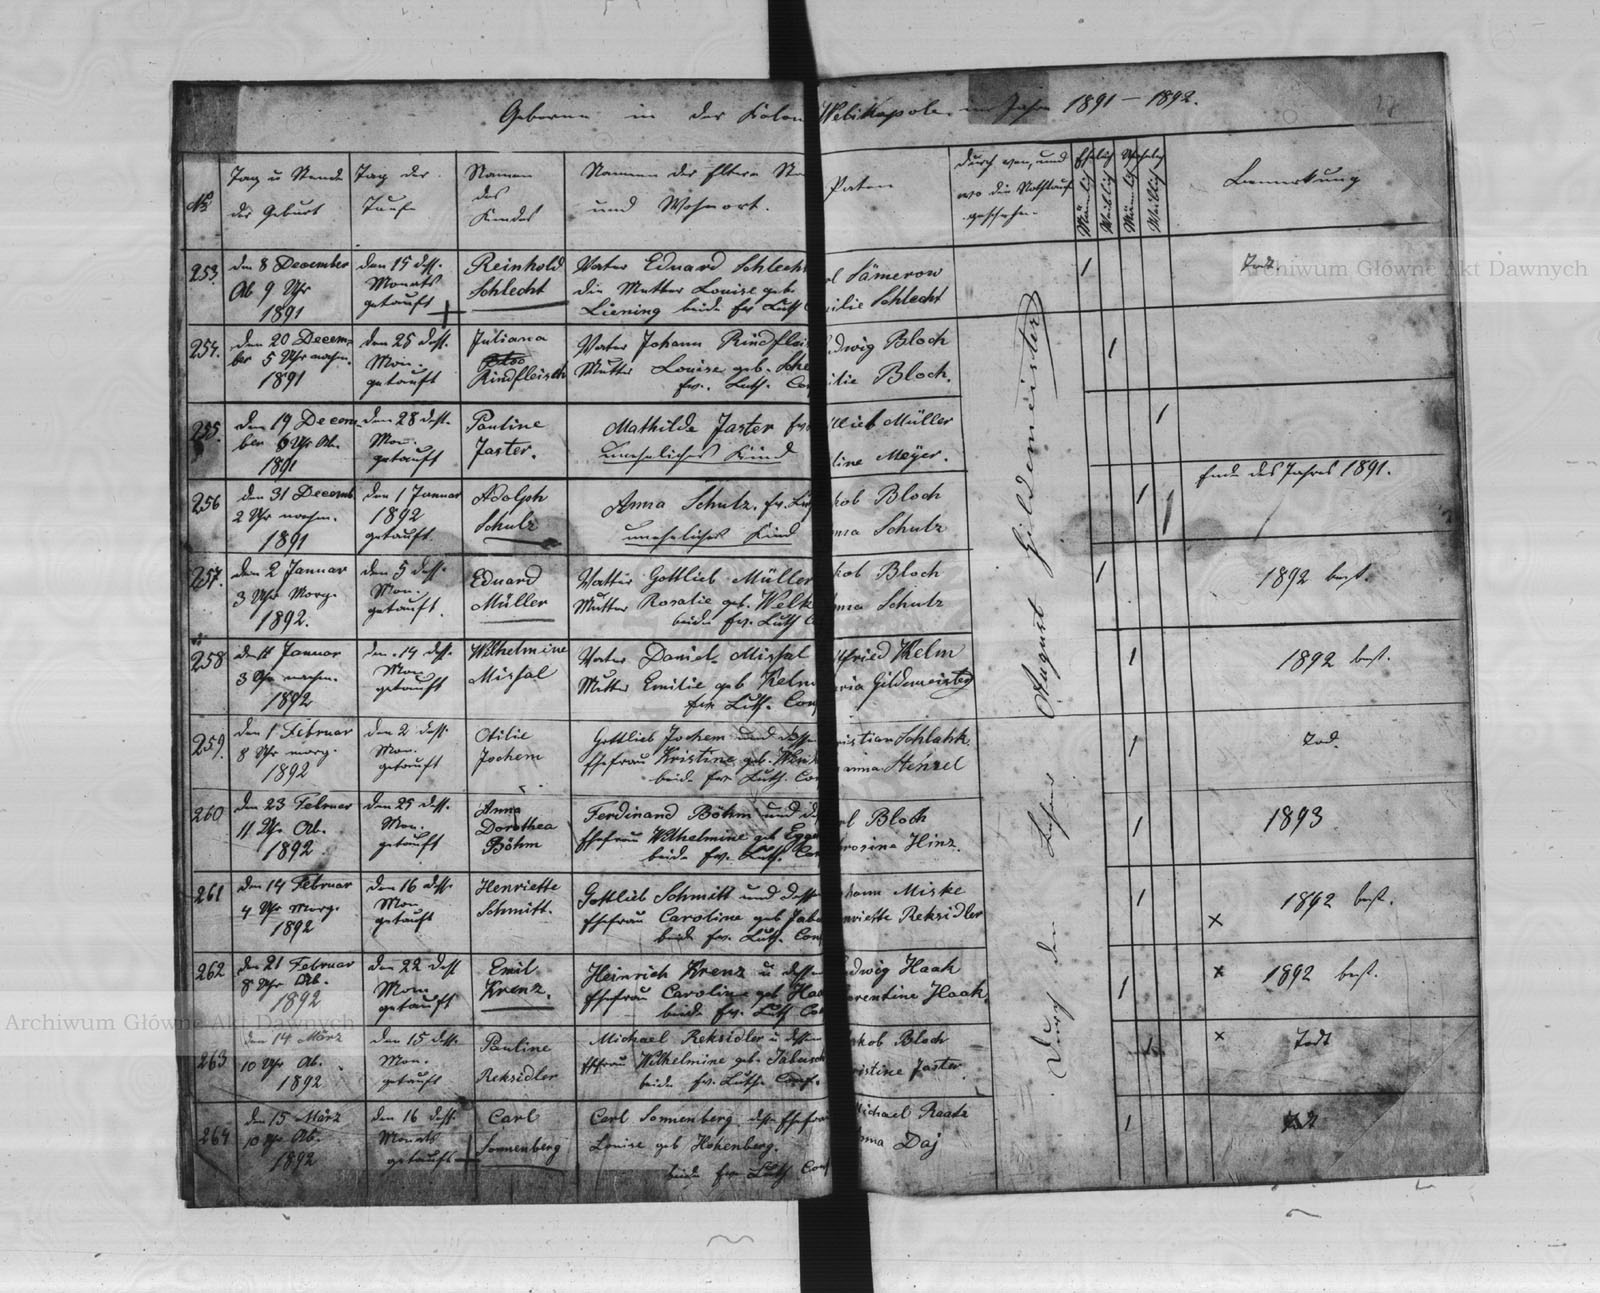 Geboren in der Kolon Welikopole im Jahre 1891 – 1892.
№
Tag u Stunde der Geburt
Tag der Taufe
Namen des Kindes
Namen der Eltern
und Wohnort.
Paten
durch wen, und wo die Nothtaufe geschehen
Ehelich
Unehelich
Mänlich
Weiblich
Mänlich
Weiblich
Bemerkung
253.
den 8 December
Ab 9 Uhr
1891
den 15 dess.
Monats
getauft
Reinhold
Schlecht
Vater Eduard Schlech
die Mutter Louise geb
Liening beide ev Luth
Sämerow
ilie Schlecht
Todt
254.
den 20 Decem-
ber 5 Uhr nachm.
1891
den 25 dess.
Mon.
getauft
Juliana
Rindfleisch
Vater Johann Rindflei
Mutter Louise geb. Sche
ev. Luth. Con
dwig Bloch
ilie Bloch.
255.
den 19 Decem-
ber 6 Uhr Ab.
1891
den 28 dess.
Mon.
getauft
Pauline
Jaster.
Mathilde Jaster ev
Uneheliches Kind
ttlieb Müller
line Meÿer.
Ende des Jahres 1891.
256
den 31 Decemb
2 Uhr nachm.
1891
den 1 Januar
1892
getauft.
Adolph
Schulz
Anna Schulz. ev. Lu
uneheliches Kind
kob Bloch
nna Schulz
257.
den 2 Januar
3 Uhr Morg.
1892.
den 5 dess.
Mon.
getauft.
Eduard
Müller
Vatter Gottlieb Müller
Mutter Rosalie geb. Welk
beide ev. Luth C
kob Bloch
nna Schulz
1892 best.
258
den 11 Januar
3 Uhr nachm.
1892
den 14 dess.
Mon.
getauft
Wilhelmine
Missal
Vater Daniel Missal
Mutter Emilie geb Kelm
ev. Luth. Con
ttfried Kelm
aria Gildemeister
1892 best.
259.
den 1 Februar
8 Uhr morg.
1892
den 2 dess.
Mon.
getauft
Otilie
Jochem
Gottlieb Jochem und dessen
Ehefrau Kristine geb.
beide ev. Luth. Con
ristian Schlahk
anna Henzel
Tod.
260
den 23 Februar
11 Uhr Ab.
1892
den 25 dess.
Mon.
getauft
Anna
Dorothea
Böhm
Ferdinand Böhm und de
Ehefrau Wilhelmine geb Egge
beide ev. Luth. Con
rl Bloch
frosina Hinz.
1893
261
den 14 Februar
4 Uhr Morg.
1892
den 16 dess.
Mon
getauft
Henriette
Schmitt.
Gottlieb Schmitt und dessen
Ehefrau Caroline geb Jabu
beide ev. Luth. Con
hann Miske
nriette Reksidler
x
1892 best.
262
den 21 Februar
8 Uhr Ab.
1892
den 22 dess
Mon
getauft
Emil
Krenz.
Heinrich Krenz u dessen
Ehefrau Caroline geb Haa
beide ev. Luth Con
udwig Haak
orentine Haak,
x
1892 best.
263
den 14 März
10 Uhr Ab.
1892
den 15 dess.
Mon.
getauft
Pauline
Reksidler
Michael Reksidler u dessen
Ehfrau Wilhelmine geb. Jabusch
beide ev. Luth. Conf.
akob Bloch
ristine Jaster
x
Todt
264
den 15 März
10 Uhr Ab.
1892
den 16 dess
Monats
getauft
Carl
Sonnenberg
Carl Sonnenberg dess Ehefrau
Louise geb Hohenberg.
beide ev Luth Conf
Michael Raatz
nna Daj
Durch den Lehrer August Gildemeister
Archiwum Główne Akt Dawnych
Archiwum Główne Akt Dawnych